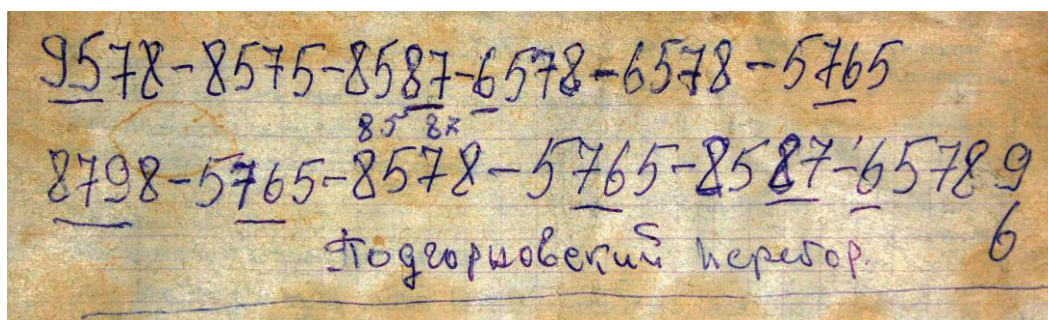 9578-8575-8587-6578-6578-5765
85 8х
8798-5765-8578-5765-8587-65789
6
Подгорновский перебор.